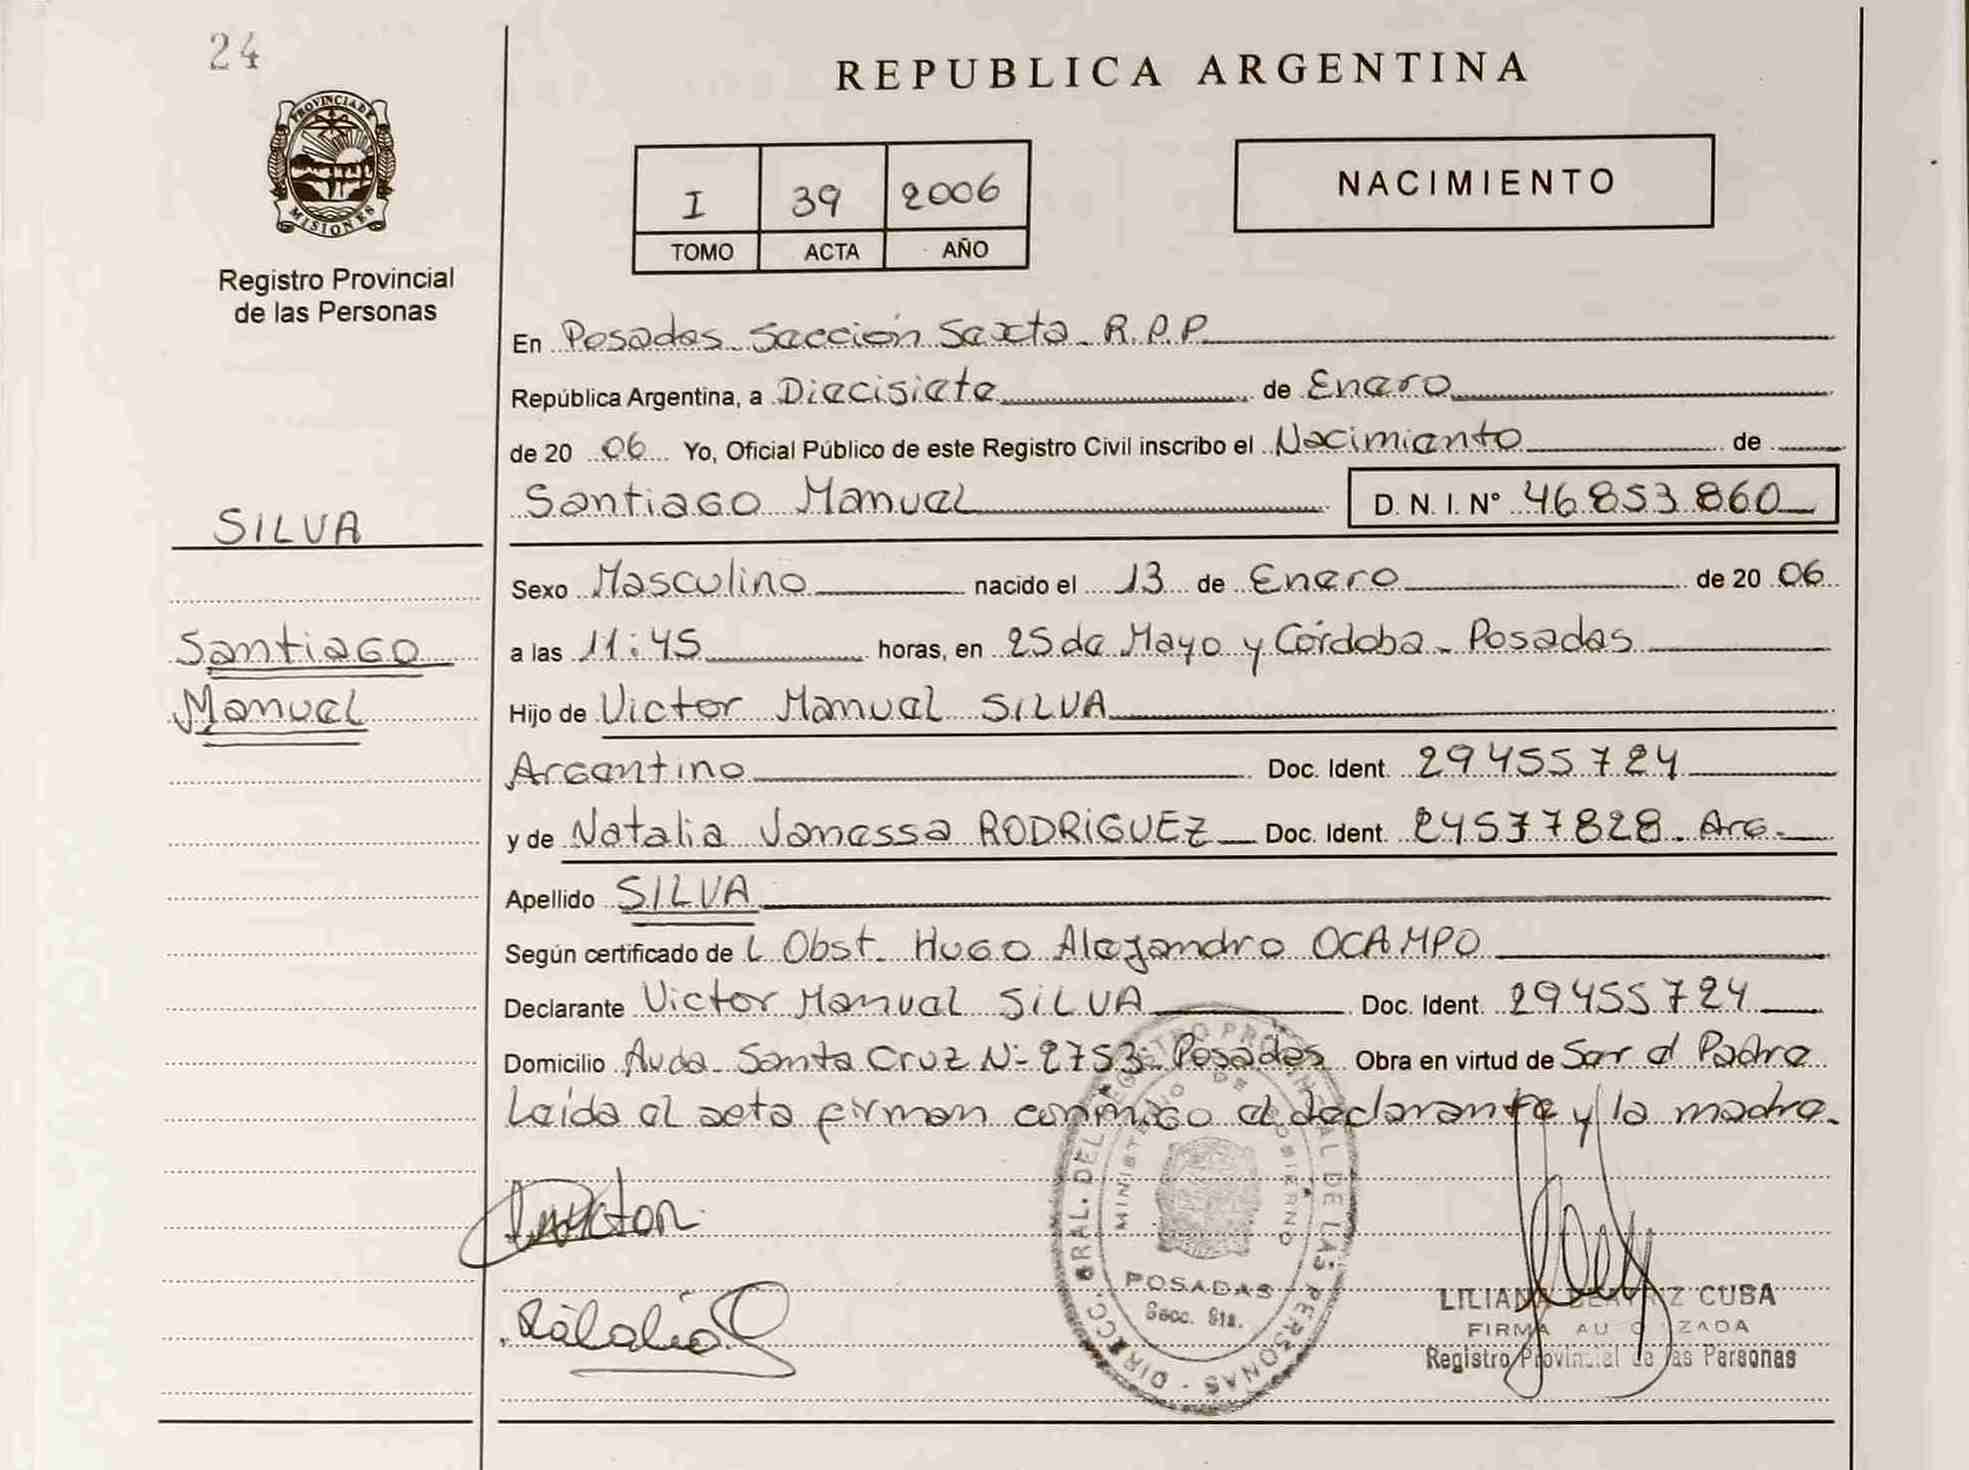 24
PROVINCIA DE
MISIONES
Registro Provincial
de las Personas
SILVA
Santiago
Manuel
REPUBLICA ARGENTINA
I 39 2006
TOMO ACTA AÑO
NACIMIENTO
En Posadas Sección Sexta R.P.P.
República Argentina, a Diecisiete de Enero
de 20 06 Yo, Oficial Público de este Registro Civil inscribo el Nacimiento de
Santiago Manuel D. N. I. Nº 46.853.860
Sexo Masculino nacido el 13 de Enero de 20 06
a las 11:45 horas, en 25 de Mayo y Córdoba - Posadas
Hijo de Victor Manuel SILVA
Argentino Doc. Ident. 29.455.724
y de Natalia Vanessa RODRIGUEZ Doc. Ident. 24577828. Arg.
Apellido SILVA
Según certificado de L Obst. Hugo Alejandro OCAMPO
Declarante Victor Manuel SILVA Doc. Ident. 29455724
Domicilio Avda. Santa Cruz Nº 2753 - Posadas Obra en virtud de Ser el Padre
Leída el acta firman conmigo el declarante y la madre.
DIRECC. GRAL. DEL REGISTRO PROVINCIAL DE LAS PERSONAS
MINISTERIO DE GOBIERNO
POSADAS
Secc. 6ta.
LILIANA BEATRIZ CUBA
FIRMA AUTORIZADA
Registro Provincial de las Personas